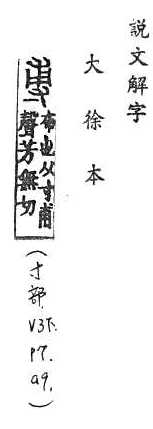 說文解字
大徐本
尃
布也从寸甫
聲芳無切
(寸部. V3下. P7. a9.)